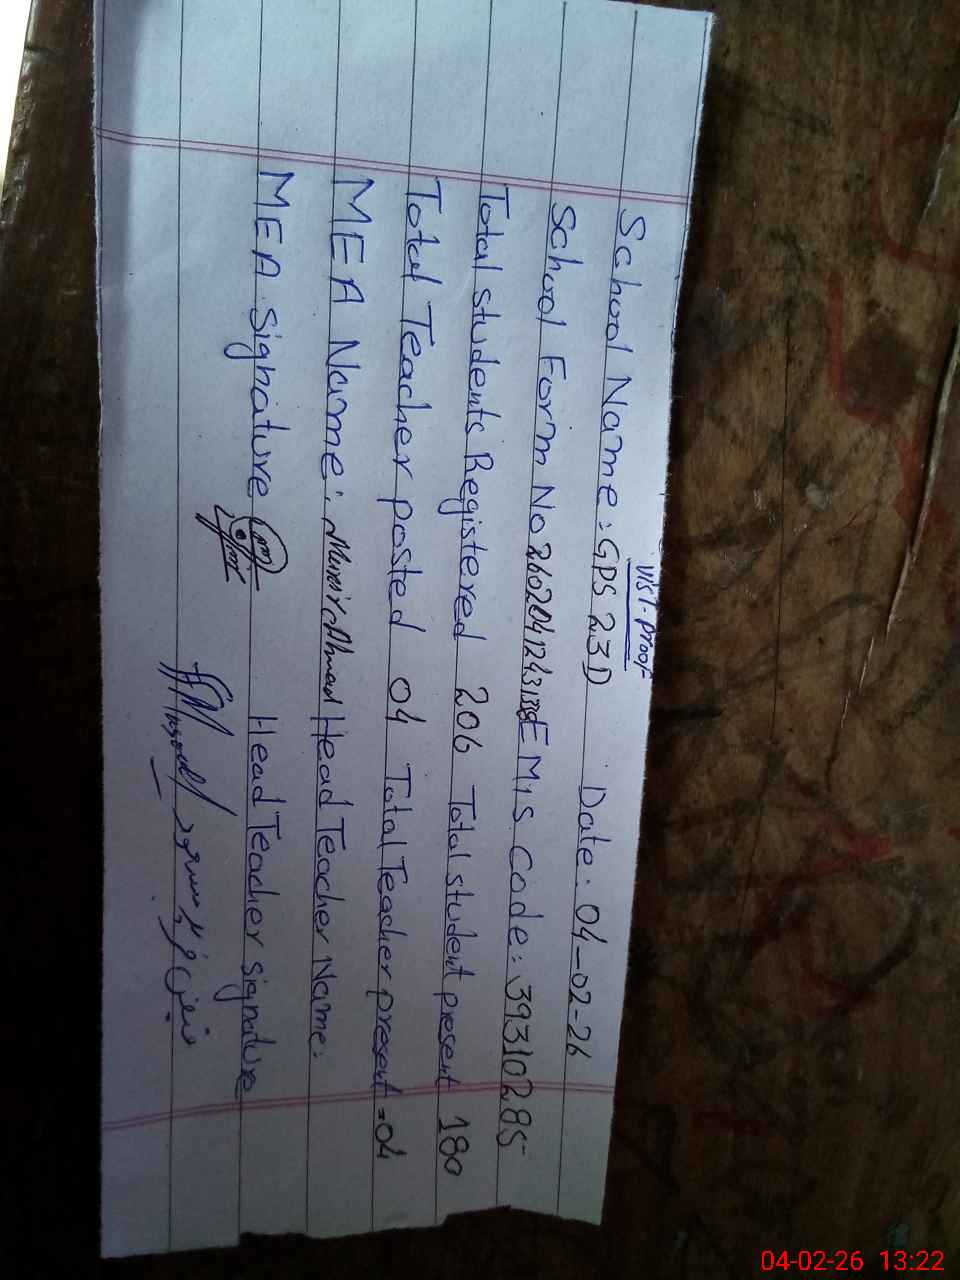 Vist. Proof
School Name: GPS 23D Date: 04-02-26
School Form No EMIS Code: 39310285
Total students Registered 206 Total student present 180
Total Teacher posted 04 Total Teacher present = 04
MEA Name: Munir Ahmad Head Teacher Name:
MEA Signature Head Teacher signature
04-02-26 13:22